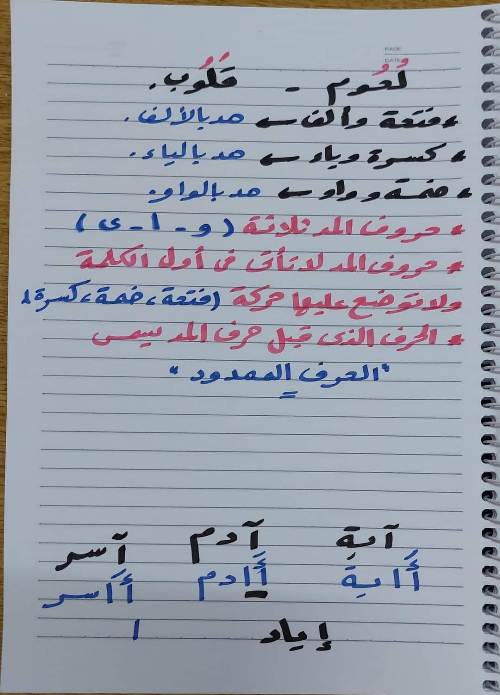 PAGE
DATE
لُعُوم - قُلُوب.
* فتحة وألف ← مد بالألف.
* كسرة وياء ← مد بالياء.
* ضمة وواو ← مد بالواو.
* حروف المد ثلاثة ( و - ا - ى )
* حروف المد لا تأتى فى أول الكلمة
ولا توضع عليها حركة (فتحة، ضمة، كسرة)
* الحرف الذى قبل حرف المد يسمى
"الحرف الممدود"
آية آدم آسر
أَاية أَادم أَاسر
إياد ا